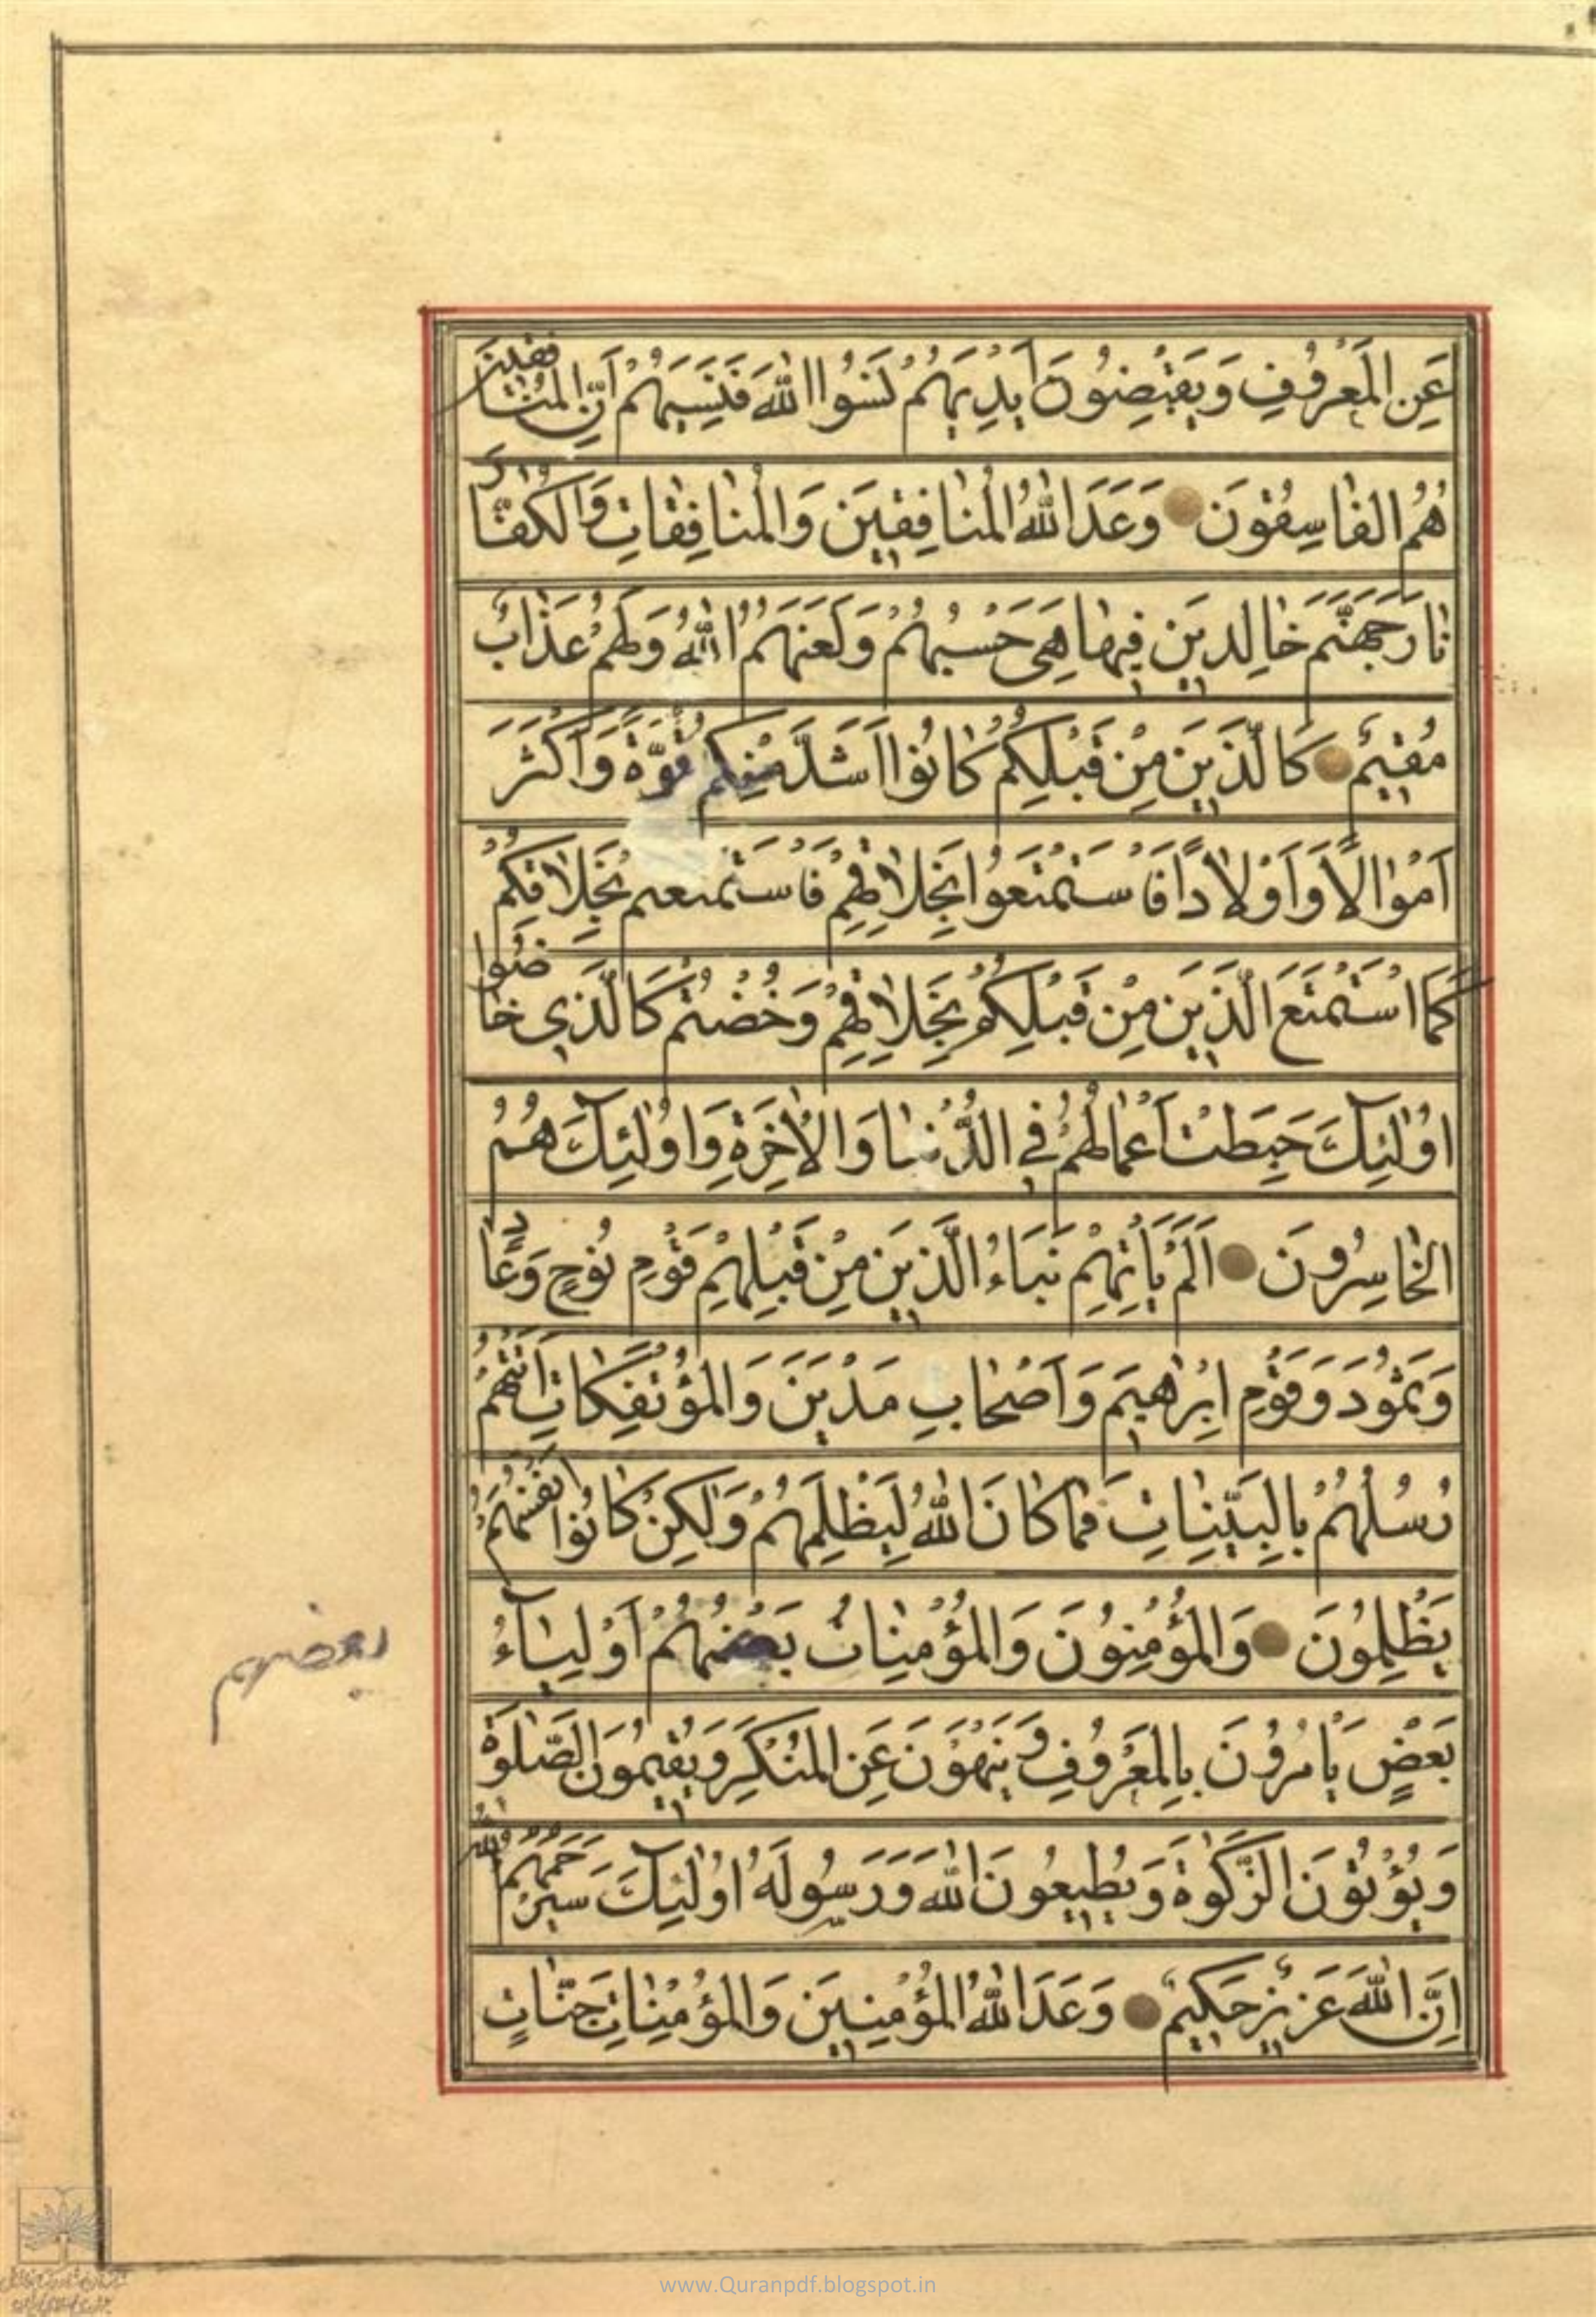 عَنِ الْمَعْرُوفِ وَيَقْبِضُونَ اَيْدِيَهُمْ نَسُوا اللّٰهَ فَنَسِيَهُمْ اِنَّ الْمُنَافِقِينَ
هُمُ الْفَاسِقُونَ وَعَدَ اللّٰهُ الْمُنَافِقِينَ وَالْمُنَافِقَاتِ وَالْكُفَّارَ
نَارَ جَهَنَّمَ خَالِدِينَ فِيهَا هِيَ حَسْبُهُمْ وَلَعَنَهُمُ اللّٰهُ وَلَهُمْ عَذَابٌ
مُقِيمٌ كَالَّذِينَ مِنْ قَبْلِكُمْ كَانُوا اَشَدَّ مِنْكُمْ قُوَّةً وَاَكْثَرَ
اَمْوَالًا وَاَوْلَادًا فَاسْتَمْتَعُوا بِخَلَاقِهِمْ فَاسْتَمْتَعْتُمْ بِخَلَاقِكُمْ
كَمَا اسْتَمْتَعَ الَّذِينَ مِنْ قَبْلِكُمْ بِخَلَاقِهِمْ وَخُضْتُمْ كَالَّذِي خَاضُوا
اُولٰئِكَ حَبِطَتْ اَعْمَالُهُمْ فِي الدُّنْيَا وَالْاٰخِرَةِ وَاُولٰئِكَ هُمُ
الْخَاسِرُونَ اَلَمْ يَأْتِهِمْ نَبَاُ الَّذِينَ مِنْ قَبْلِهِمْ قَوْمِ نُوحٍ وَعَادٍ
وَثَمُودَ وَقَوْمِ اِبْرٰهِيمَ وَاَصْحَابِ مَدْيَنَ وَالْمُؤْتَفِكَاتِ اَتَتْهُمْ
رُسُلُهُمْ بِالْبَيِّنَاتِ فَمَا كَانَ اللّٰهُ لِيَظْلِمَهُمْ وَلٰكِنْ كَانُوا اَنْفُسَهُمْ
يَظْلِمُونَ وَالْمُؤْمِنُونَ وَالْمُؤْمِنَاتُ بَعْضُهُمْ اَوْلِيَآءُ
بعضهم
بَعْضٍ يَأْمُرُونَ بِالْمَعْرُوفِ وَيَنْهَوْنَ عَنِ الْمُنْكَرِ وَيُقِيمُونَ الصَّلٰوةَ
وَيُؤْتُونَ الزَّكٰوةَ وَيُطِيعُونَ اللّٰهَ وَرَسُولَهُ اُولٰئِكَ سَيَرْحَمُهُمُ اللّٰهُ
اِنَّ اللّٰهَ عَزِيزٌ حَكِيمٌ وَعَدَ اللّٰهُ الْمُؤْمِنِينَ وَالْمُؤْمِنَاتِ جَنَّاتٍ
www.Quranpdf.blogspot.in